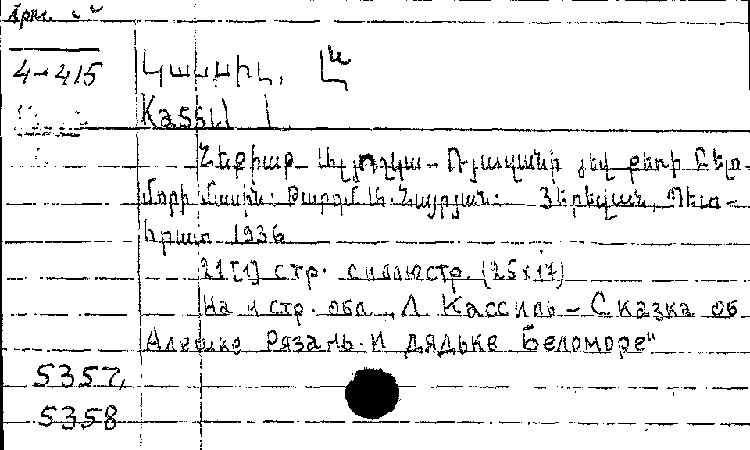 4-415
Կասսիլ, Լ
Kassil L
Հեքիաթ Ալյոշկա-Ռյազանի յեվ քեռի Բելո-
մորի մասին: Թարգմ. Ա. Նայրյան: Յերեվան, Պետ-
հրատ 1936
21[1] стр. с иллюстр. (25x17)
На 4 стр. обл. „Л. Кассиль - Сказка об
Алешке Рязань и дядьке Беломоре"
5357,
5358